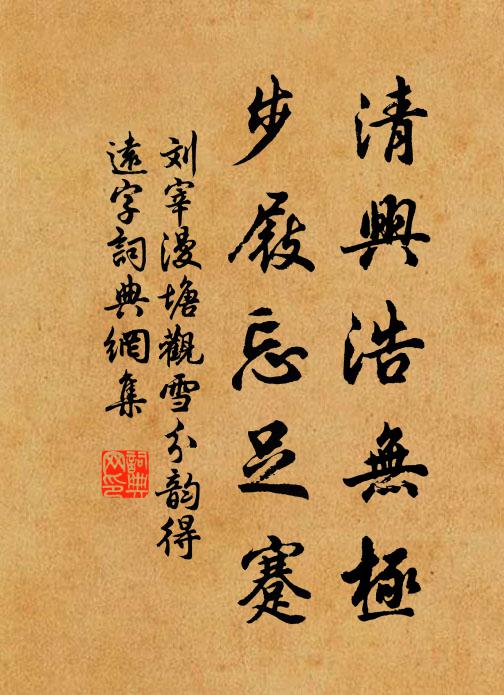 清興浩無極
步屐忘足蹇
刘宰漫塘觀雪分韵得
遠字詞典網集
詞典网印